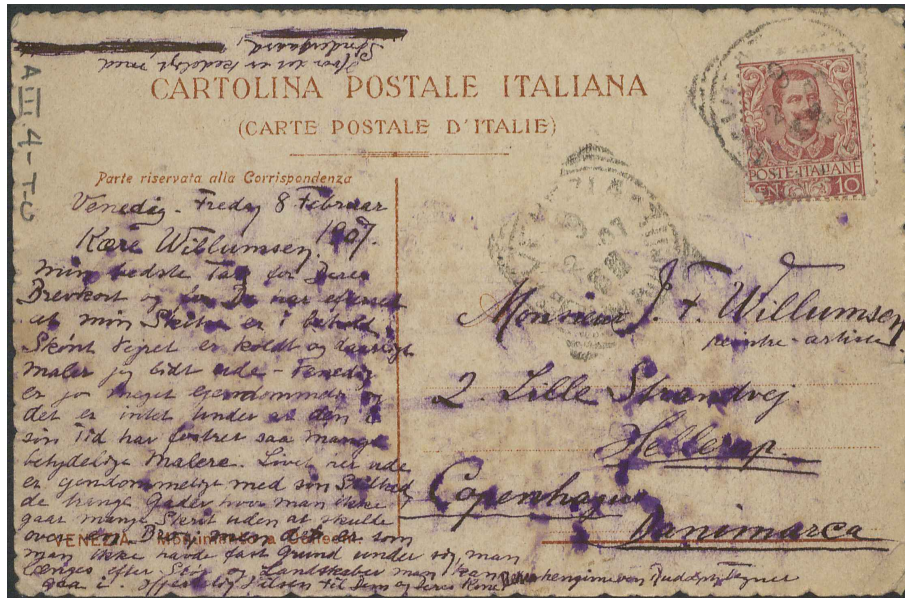 Hvor det er kedeligt med
Søndergaard,
CARTOLINA POSTALE ITALIANA
(CARTE POSTALE D'ITALIE)
A III 4-T-G
POSTE-ITALIANE
10
VENEZIA
Parte riservata alla Corrispondenza
Venedig - Fredag 8 Februar
1907.
Kære Willumsen.
min bedste Tak for Deres
Brevkort og for De har efterset
at min Skitse er i behold.
Skønt Vejret er koldt og daarligt
maler jeg lidt ude - Venedig
er jo meget ejendommelig og
det er intet Under at den i
sin Tid har fostret saa mange
betydelige Malere. Livet her ude
er ejendommeligt med sin Stilhed
de trange Gader hvor man ikke
gaar mange Skridt uden at skulde
over en Bro, men det er som
man ikke havde fast Grund under sig, man
længes efter Skov og Landskaber man kan
gaa i. Hilsen til Dem og Deres Kone
hengivne ven Rudolph Tegner
VENEZIA
Monsieur J. F. Willumsen
peintre-artiste
2. Lille Strandvej
Hellerup.
Copenhague
Danimarca